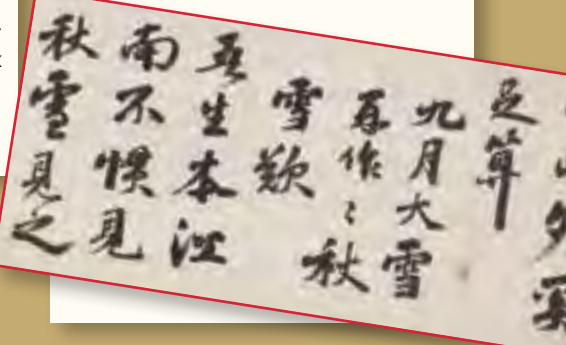 足算
九月大雪
再作〻秋
雪歎
吾生本江
南不慣見
秋雪見之